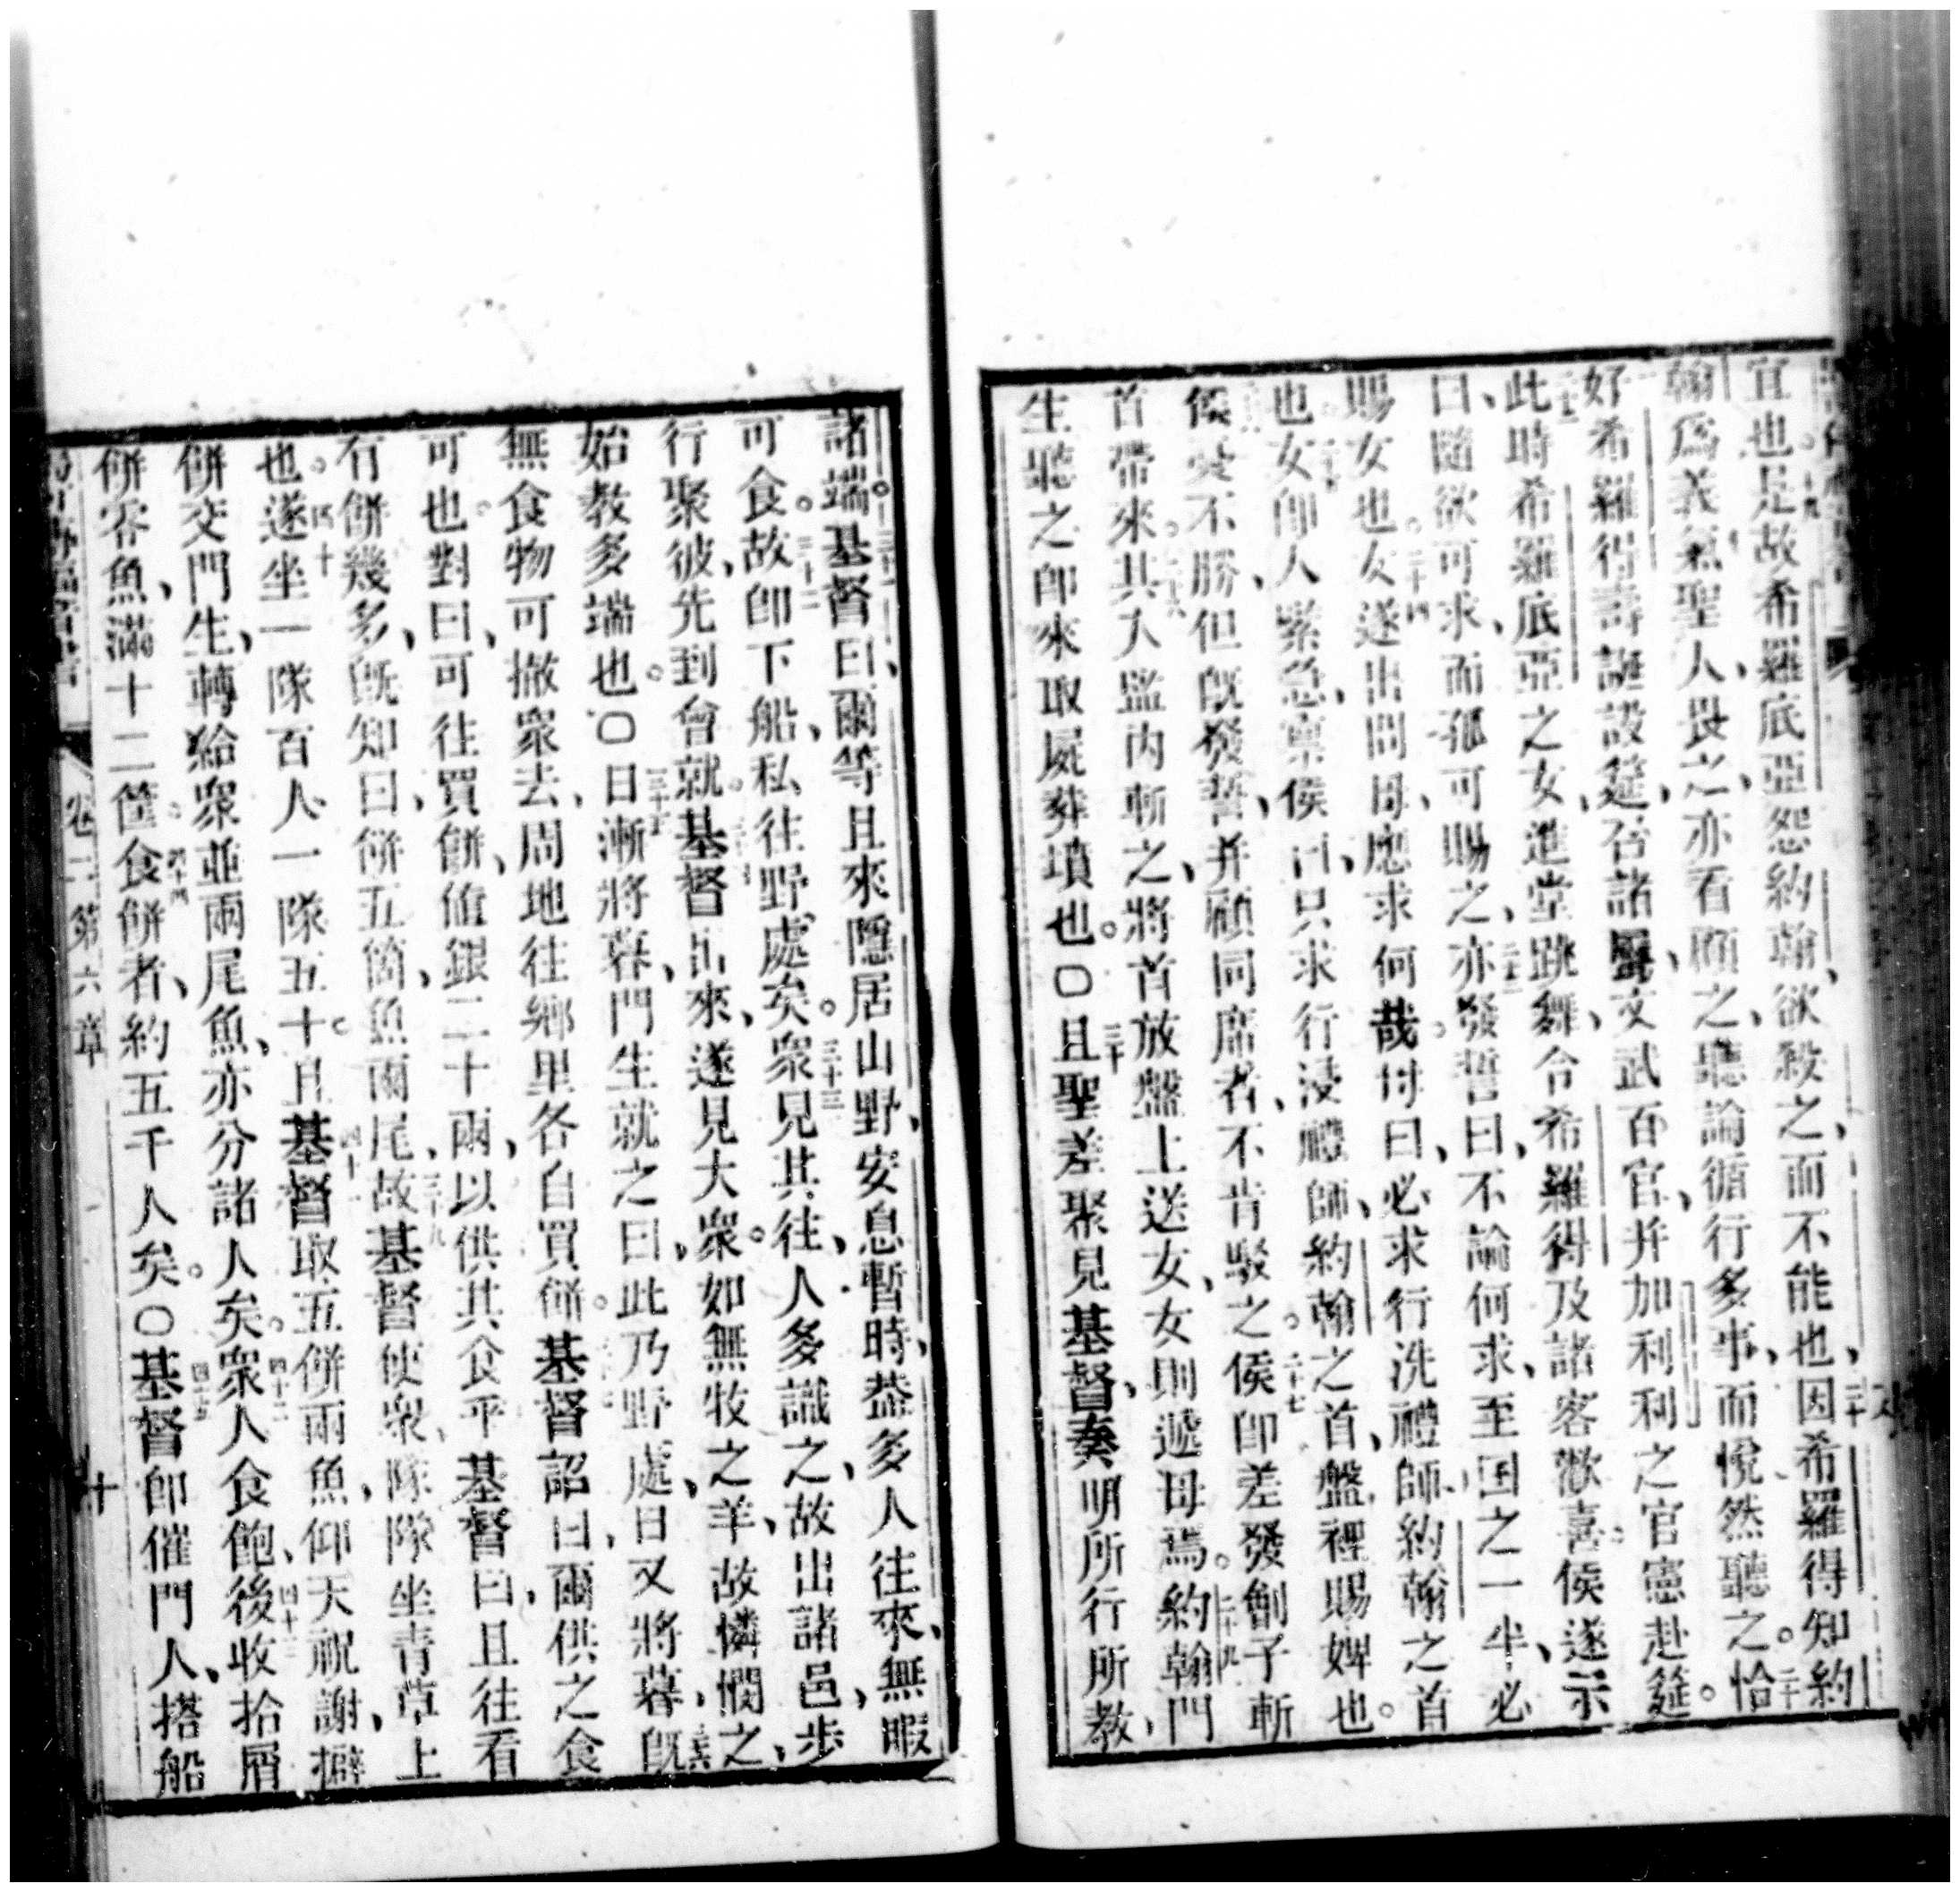 宜也。十九是故希羅底亞怨約翰、欲殺之、而不能也、二十因希羅得知約
翰爲義氣聖人、畏之、亦看顧之、聽論循行多事、而悅然聽之。二十一恰
好希羅得壽誕設筵、召諸爵、文武百官、并加利利之官憲赴筵。
二十二此時希羅底亞之女、進堂跳舞、令希羅得及諸客歡喜。侯遂示
曰、隨欲可求、而孤可賜之、二十三亦發誓曰、不論何求、至国之一半、必
賜女也。二十四女遂出問母、應求何哉。母曰、必求行洗禮師、約翰之首
也。二十五女卽人緊急、稟侯曰、只求行浸禮師、約翰之首、盤裡賜婢也。
二十六侯憂不勝、但旣發誓、并顧同席者、不肯駁之。二十七侯卽差發劊子斬
首帶來。二十八其人監內斬之、將首放盤上送女、女則遞母焉。二十九約翰門
生聽之卽來取屍葬墳也。〇三十且聖差聚見基督、奏明所行所教、
諸端。三十一基督曰、爾等且來隱居山野、安息暫時、葢多人往來、無暇
可食。三十二故卽下船、私往野處矣。三十三衆見其往、人多識之、故出諸邑、步
行聚彼、先到會就。三十四基督出來、遂見大衆。如無牧之羊、故憐憫之、
始教多端也。〇三十五日漸將暮、門生就之曰、此乃野處、日又將暮、三十六旣
無食物可撤衆去、周地往鄉里各自買餅。三十七基督詔曰、爾供之食
可也。對曰、可往買餅、値銀二十兩、以供其食乎、基督曰、且往看
有餅幾多、旣知曰、餅五箇、魚兩尾、三十九故基督使衆、隊隊坐青草上
也。四十遂坐一隊百人一隊五十。四十一且基督取五餅兩魚、仰天祝謝、擗
餅交門生、轉給衆並兩尾魚、亦分諸人矣。四十二衆人食飽、四十三後收拾屑
餅零魚、滿十二筐。四十四食餅者、約五千人矣。〇四十五基督卽催門人、搭船
卷二第六章 十